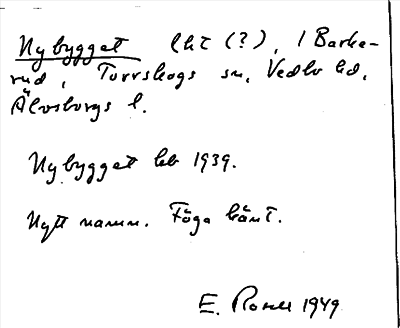 Nybygget lht (?), 1 Barke-
rud, Torrskogs sn, Vedbo hd,
Älvsborgs l.
Nybygget kb 1939.
Nytt namn. Föga känt.
E. Rosell 1949